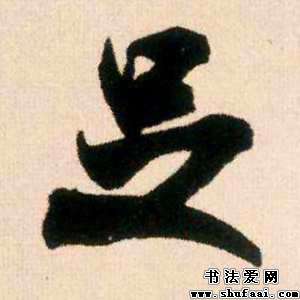 足
书法爱网
www.shufaai.com